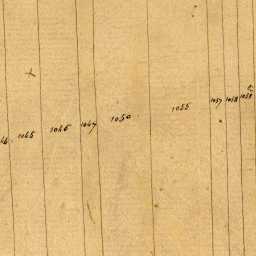 1045
1046
1047
1050
1055
1057
1058
1059